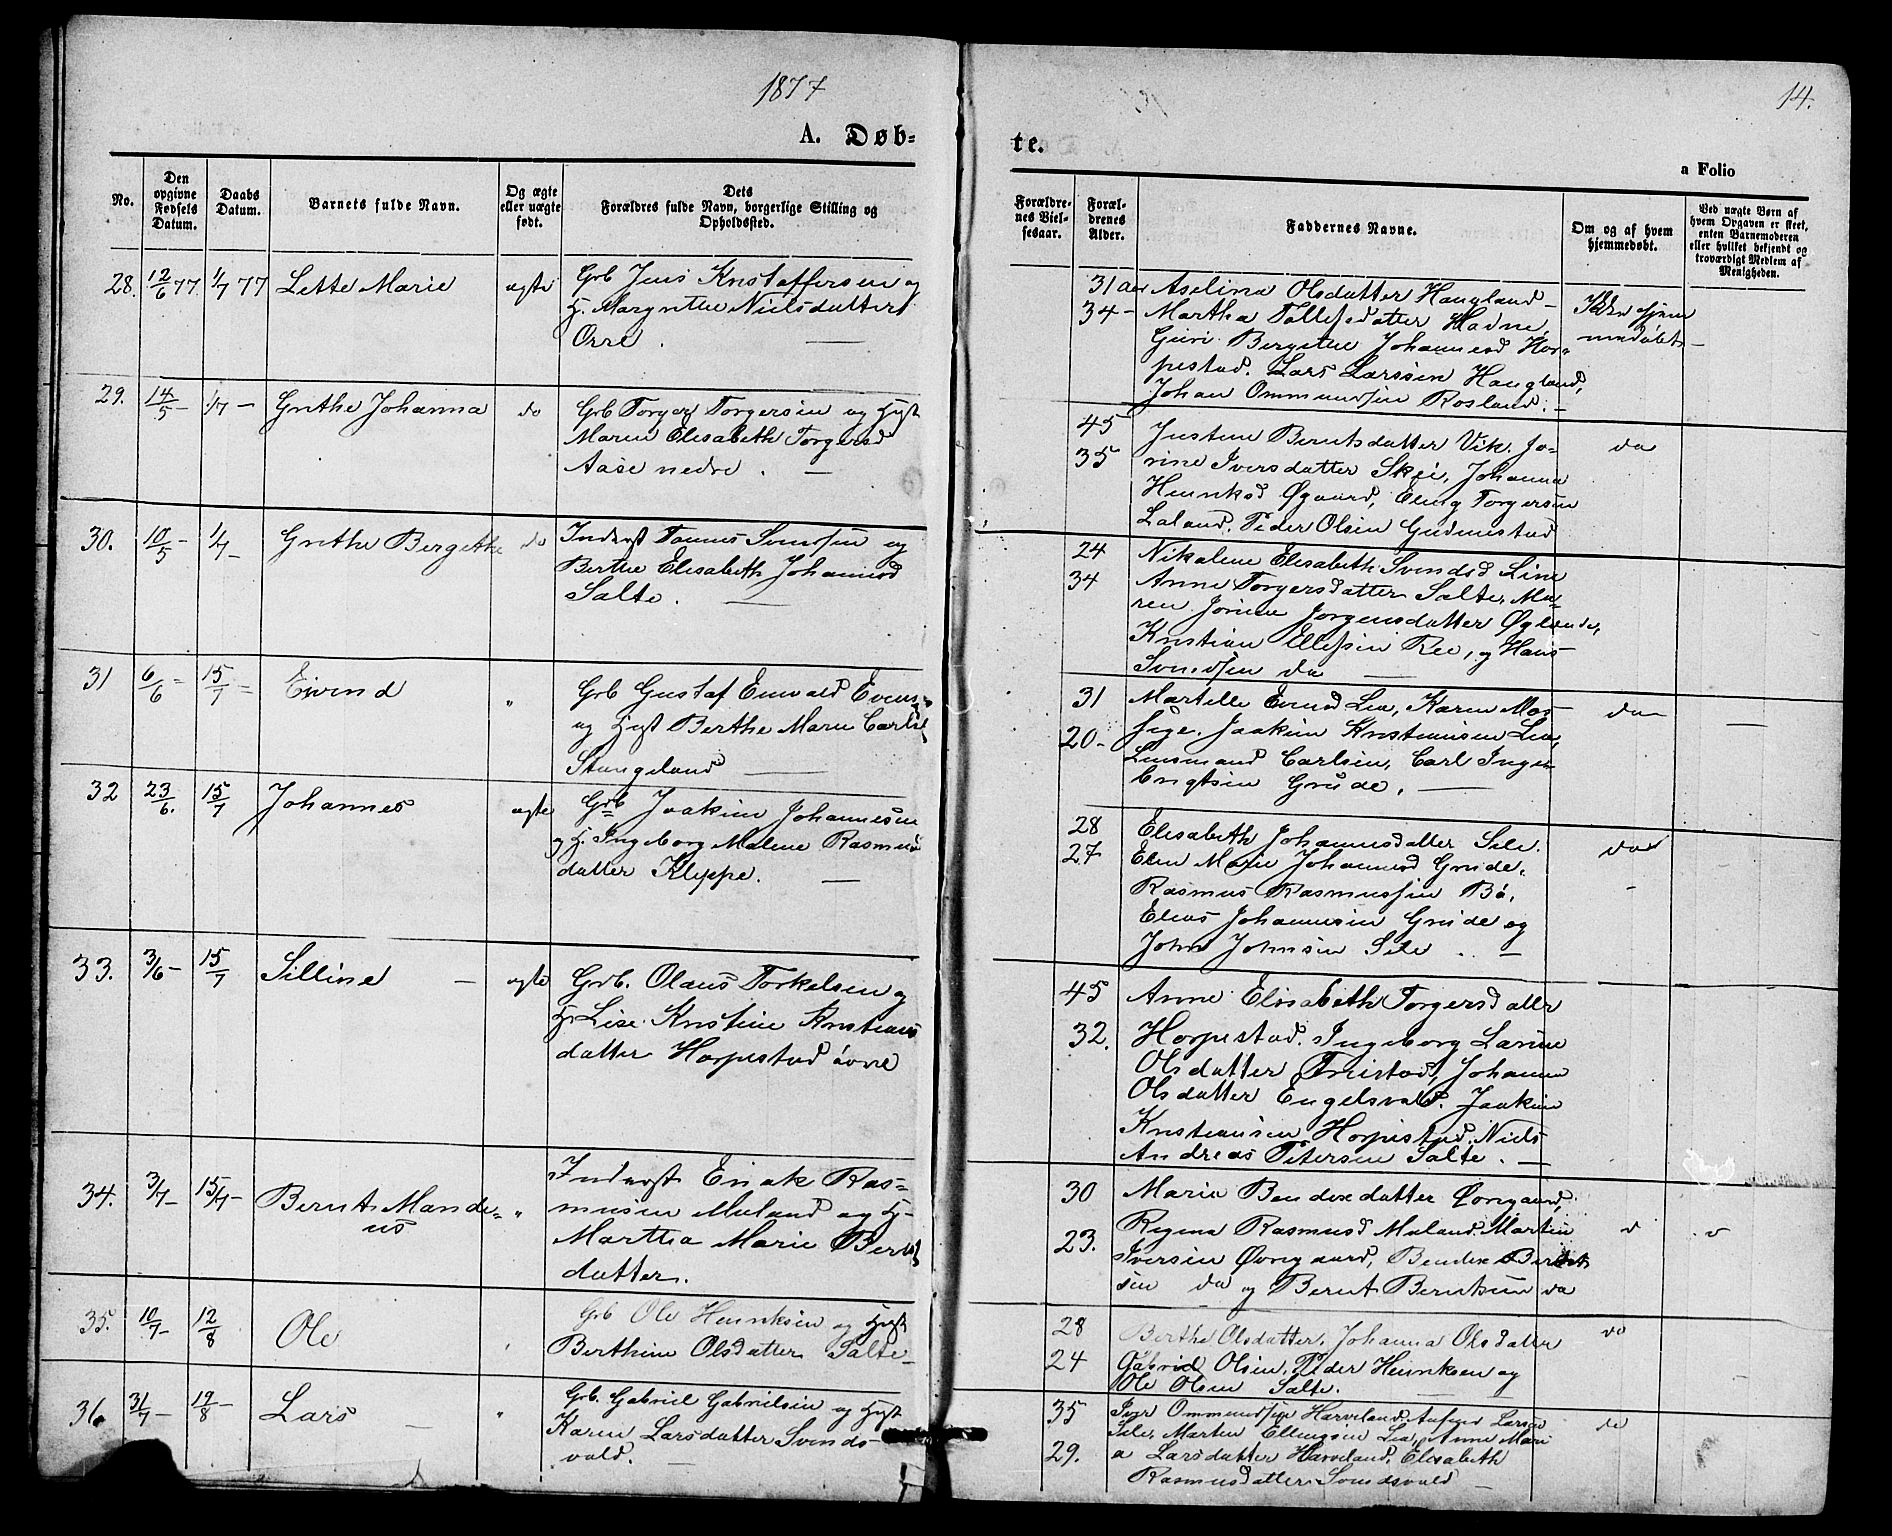 1877
14.
A. Døb-
te.
a Folio
No.
Den
opgivne
Fødsels
Datum.
Daabs
Datum.
Barnets fulde Navn.
Og ægte
eller uægte
født.
Dets
Forældres fulde Navn, borgerlige Stilling og
Opholdssted.
Forældre-
nes Viel-
sesaar.
Foræl-
drenes
Alder.
Faddernes Navne.
Om og af hvem
hjemmedøbt.
Ved uægte Børn af
hvem Opgaven er skeet,
enten Barnemoderen
eller hvilket bekjendt og
troværdigt Medlem af
Menigheden.
28. 12/6 77. 1/7 77 Lette Marie ægte
Grb Jens Kristoffersen og
H. Margrethe Nielsdatter
Orre. —
31 aar
34 –
Aselina Olsdatter Haugland –
Martha Tollefsdatter Hadne,
Guri Bergithe Johannesd Hor-
pestad. Lars Larssen Haugland,
Johan Ommundsen Rosland. –
Ikke hjem
medøbt –
29. 14/5 – 1/7 – Grethe Johanna do
Grb Torger Torgersen og Hust
Maren Elisabeth Torgersd
Aase nedre. —
45
35
Justine Berntsdatter Vik. Jo-
rine Iversdatter Skei, Johanna
Henriksd Øgaard, Eling Torgersen
Laland. Peder Olsen Gudmestad
do
30. 10/5 – 1/7 – Grethe Bergethe do
Inderst Tønnes Svendsen og
Berthe Elisabeth Johannesd
Salte. —
24
34
Nikoline Elisabeth Svendsd Line
Anne Torgersdatter Salte, Ma-
ren Jorine Jorgensdatter
Kristian Ellefsen Ree, og Hans
Svendsen do —
31 6/6 = 15/7 = Eivend "
Grb Gustaf Enevald Evens
og Hust Berthe Marie Carls
Stangeland —
31
20 –
Martille Lea, Karen Mos-
sige. Joakim Kristiansen Lea,
Lensmand Carlsen, Carl Inge-
brigtsen Grude. —
do —
32 23/6. 15/7 Johannes ægte
Grb Joakim Johannesen
og H. Ingeborg Malene Rasmus
datter Kleppe. —
28
27
Elisabeth Johannesdatter Sele.
Elen Marie Johannesd Grude.
Rasmus Rasmussen Bø.
Elias Johannesen Grude og
John Johnsen Sele .. –
do
–
33. 3/6 – 15/7 Silline — ægte
Grb. Olaus Torkelsen og
H. Lise Kristine Kristians
datter Horpestad øvre
45
32.
Anne Elisabeth Torgersdatter
Horpestad. Ingeborg Larine
Olsdatter Tristad, Johanna
Olsdatter Engelsvold. Joakim
Kristiansen Horpestad. Niels
Andreas Petersen Salte. —
34. 3/7 – 15/7 – Bernt Mande-
us "
Inderst Enok Ras-
musen Meland og H.
Martha Marie Bernts
datter.
30
23.
Maria Bendixdatter Øvregaard,
Regina Rasmusd Meland. Martin
Iversen Øvregaard, Bendix Bernt
sen do og Bernt Berntsen do
35. 10/7 – 12/8 Ole
Grb Ole Henriksen og Hust
Berthine Olsdatter Salte –
28
24
Berthe Olsdatter, Johanna Olsdatter
Gabriel Olsen, Peder Henriksen og
Ole Olsen Salte.
do
36. 31/7 – 19/8 – Lars — "
Grb. Gabriel Gabrielsen og Hust
Karen Larsdatter Svends-
vold. —
35
29.
Iver Ommundsen Harveland. Larsen
Sele, Martin Ellingsen Lea, Anne Mari
a Larsdatter Harveland, Elisabeth
Rasmusdatter Svendsvold —
do